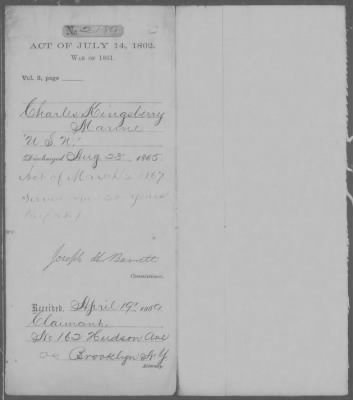 No.
ACT OF JULY 14, 1862.
War of 1861.
Vol. 3, page
Charles Kingsberry
Marine
"U.S.N."
Discharged Aug 23" 1865
Act of March 2 1867
Served 20 years
Joseph H. Barrett
Commissioner.
Received, April 19"
Claimant.
No 162 Hudson Ave
Brooklyn N.Y.
Attorney.